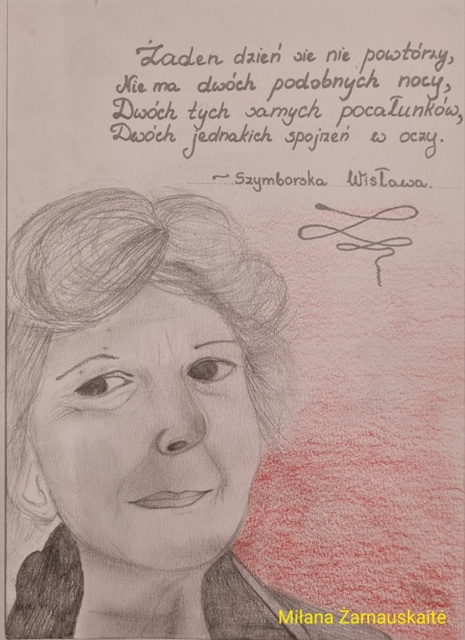 Żaden dzień sie nie powtórzy,
Nie ma dwóch podobnych nocy,
Dwóch tych samych pocałunków,
Dwóch jednakich spojrzeń w oczy.
~ Szymborska Wisława.
Milana Žarnauskaitė